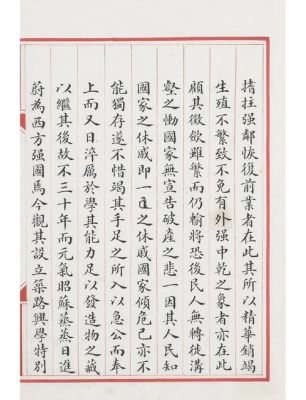 揩拄强鄰恢復前業者在此其所以精華銷竭
生殖不繁致不免有外强中乾之象者亦在此
顧其徵歛雖繁而仍輸將恐後民人無轉徙溝
壑之慟國家無宣告破產之悲一因其人民知
國家之休戚即一己之休戚國家傾危己亦不
能獨存遂不惜竭其手足之所入以急公而奉
上而又日淬厲於學其能力足以發造物之藏
以繼其後故不三十年而元氣昭蘇蒸蒸日進
蔚為西方强國焉今觀其設立築路興學特別